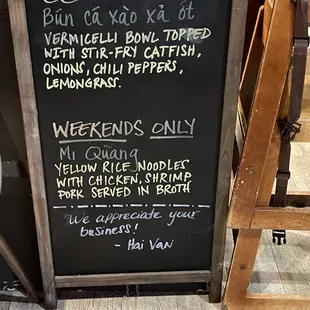 Bún cá xào xả ớt
VERMICELLI BOWL TOPPED
WITH STIR-FRY CATFISH,
ONIONS, CHILI PEPPERS,
LEMONGRASS.
WEEKENDS ONLY
Mì Quãng
YELLOW RICE NOODLES
WITH CHICKEN, SHRIMP
PORK SERVED IN BROTH
We appreciate your
business!
- Hai Van